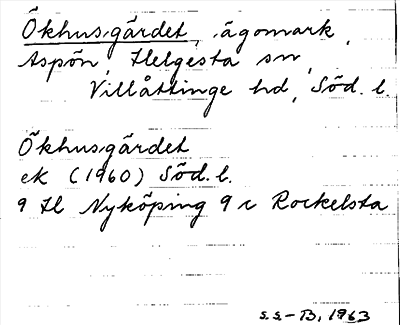 Ökhusgärdet, ägomark,
Aspön, Helgesta sn,
Villåttinge hd, Söd. l.
Ökhusgärdet
ek (1960) Söd. l.
9 H Nyköping 9 c Rockelsta
S.S-B, 1963